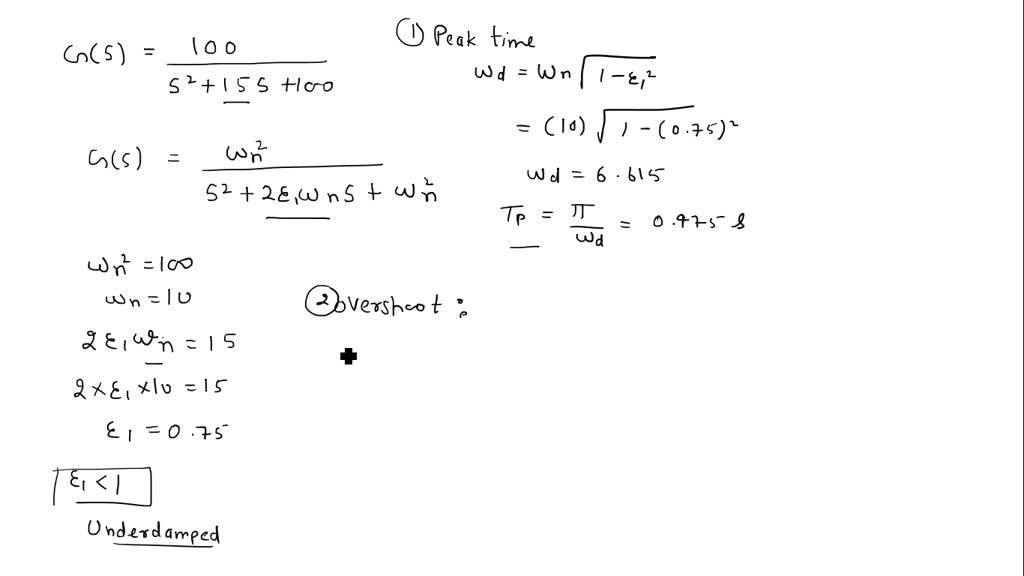 G(S) = 100 / S² + 15S + 100
G(S) = ωn² / S² + 2ε₁ωnS + ωn²
ωn² = 100
ωn = 10
2ε₁ωn = 15
2×ε₁×10 = 15
ε₁ = 0.75
ε₁ < 1
Underdamped
① Peak time
ωd = ωn √1-ε₁²
= (10) √1-(0.75)²
ωd = 6.615
Tp = π / ωd = 0.475 s
② overshoot :